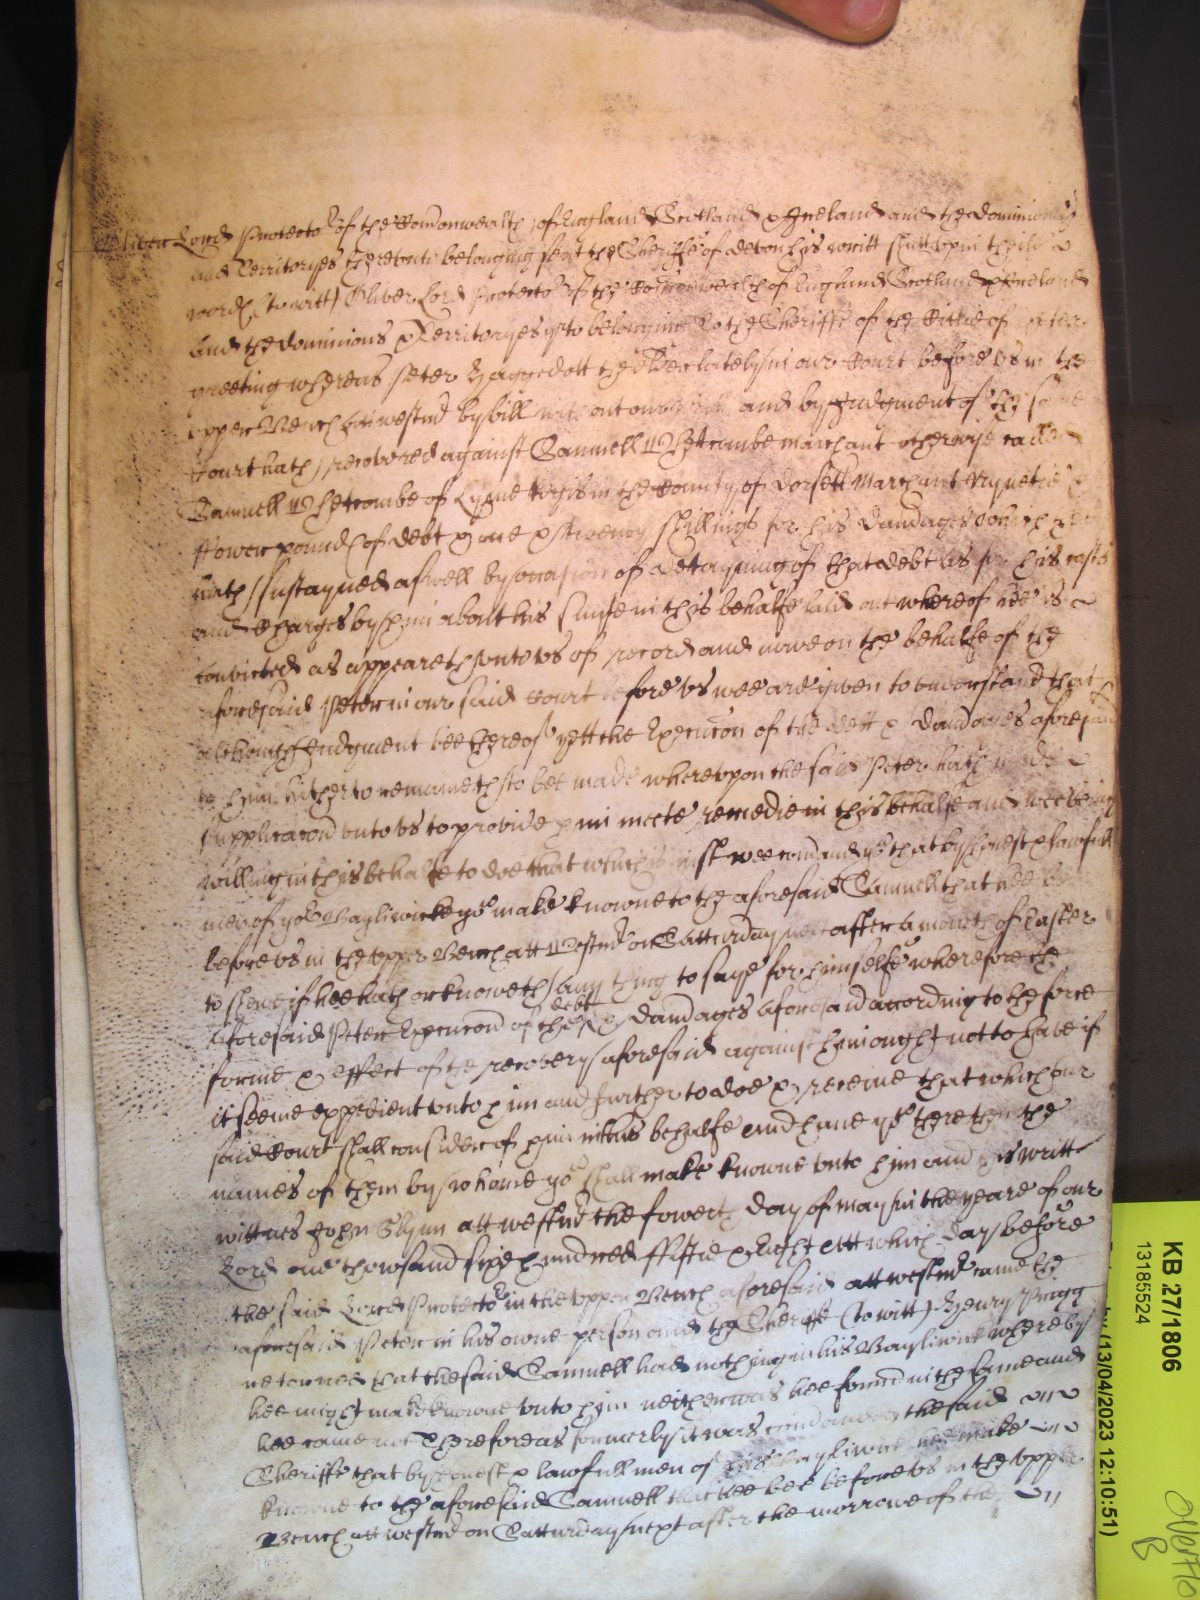 Oliver Lord Protector of the Comonwealth of England Scotland & Ireland and the dominions
and Territoryes thereunto belonging sent the Sheriffe of devon his writt shutt upp in theise
words (to witt) Oliver Lord Protector of the Comonwealth of England Scotland & Ireland
and the dominions & Territoryes yrto belonginge To the Sheriffe of the Cittie of
greeting whereas Peter the elder lately in our Court before us in the
upper Bench att westmr by bill without our writt and by Judgment of the same
Court hath recovered against Samuell Whetcombe marchant otherwise called
Samuell Whetcombe of Lyme Regis in the County of Dorsett Marchant
Fower pounds of debt & one & twenty shillings for his damages which hee
hath sustayned aswell by occasion of detayning of that debt as for his costs
and charges by him about his suite in this behalfe laid out whereof hee is
convicted as appeareth unto us of record and nowe on the behalfe of the
aforesaid Peter in our said Court before us wee are given to understand that
although Judgment bee thereof yett the Execucon of the debt & damages aforesaid
to him hitherto remaineth to bee made whereupon the said Peter hath made
supplicacon unto us to provide him meete remedie in this behalfe and wee being
willing in this behalfe to doe that which is iust wee comand you that by honest & lawfull
men of yor Bayliwicke you make knowne to the aforesaid Samuell that hee bee
before us in the upper Bench att Westmr on Satturday next after a moneth of Easter
to shewe if hee hath or knoweth any thing to saye for himselfe wherefore the
aforesaid Peter Execucon of the debt & damages aforesaid according to the force
forme & effect of the recovery aforesaid against him ought not to have if
it seeme expedient unto him and further to doe & receive that which our
said Court shall consider of him in this behalfe and have you there then the
names of them by whome you shall make knowne unto him and this writt
wittnes John Glynn att westmr the fowerth day of may in the yeare of our
Lord one thowsand sixe hundred fiftie & Eight Att which day before
the said Lord Protector in the upper Bench aforesaid att westmr came the
aforesaid Peter in his owne person and the Sheriffe (to witt) Henry
retorned that the said Samuell had nothing in his Bayliwick whereby
hee might make knowne unto him neither was hee found in the same and
hee came not Therefore as formerly it was comanded the said
Sheriffe that by honest & lawfull men of his Bayliwick hee make
knowne to the aforesaid Samuell that hee bee before us in the upper
Bench att westmr on Satturday next after the morrowe of the
KB 27/1806
13185524
(13/04/2023 12:10:51)